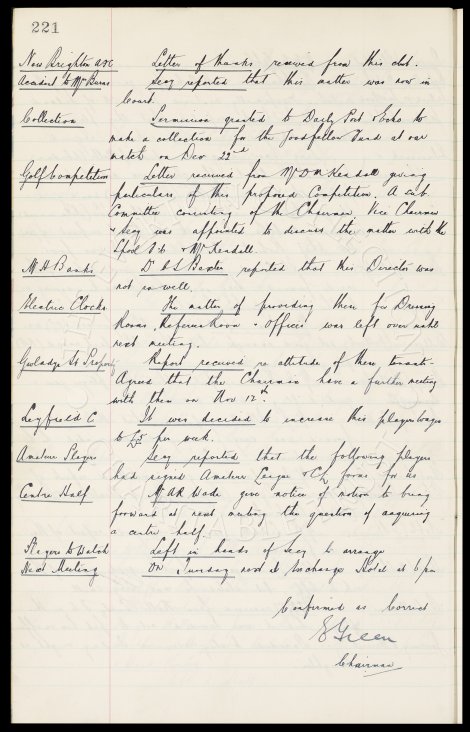 221
New Brighton A&C Letter of thanks received from this club.
Accident to Mr Burns Secy reported that this matter was now in
Court.
Collection Permission granted to Daily Post & Echo to
make a collection for the Goodfellow Fund at our
match on Dec 22nd
Golf Competition Letter received from Mr D McKendall giving
particulars of this proposed Competition. A sub
Committee consisting of the Chairman, Vice Chairman
& Secy was appointed to discuss the matter with the
Lpool & Mr Kendall.
Mr H Banks Dr C S Baxter reported that this Director was
not so well.
Electric Clocks The matter of providing these for Dressing
Rooms, Referees Room & Offices was left over until
next meeting.
Gwladys St Property Report received re attitude of these tenants.
Agreed that the Chairman have a further meeting
with them on Nov 12th.
Leyfield C It was decided to increase this players wages
to £5 per week.
Amateur Players Secy reported that the following players
had signed Amateur League & Ch forms for us
Centre Half Mr A R Wade give notice of motion to bring
forward at next meeting the question of acquiring
a centre half.
Players to Watch Left in hands of Secy to arrange
Next Meeting On Tuesday next at Exchange Hotel at 6 pm
Confirmed as Correct
E Green
Chairman